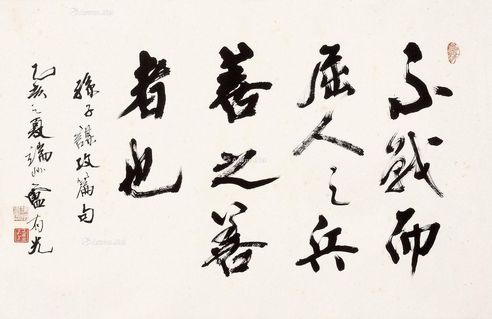 不戰而
屈人之兵
善之善
者也
孫子謀攻篇句
乙亥之夏端州盧有光